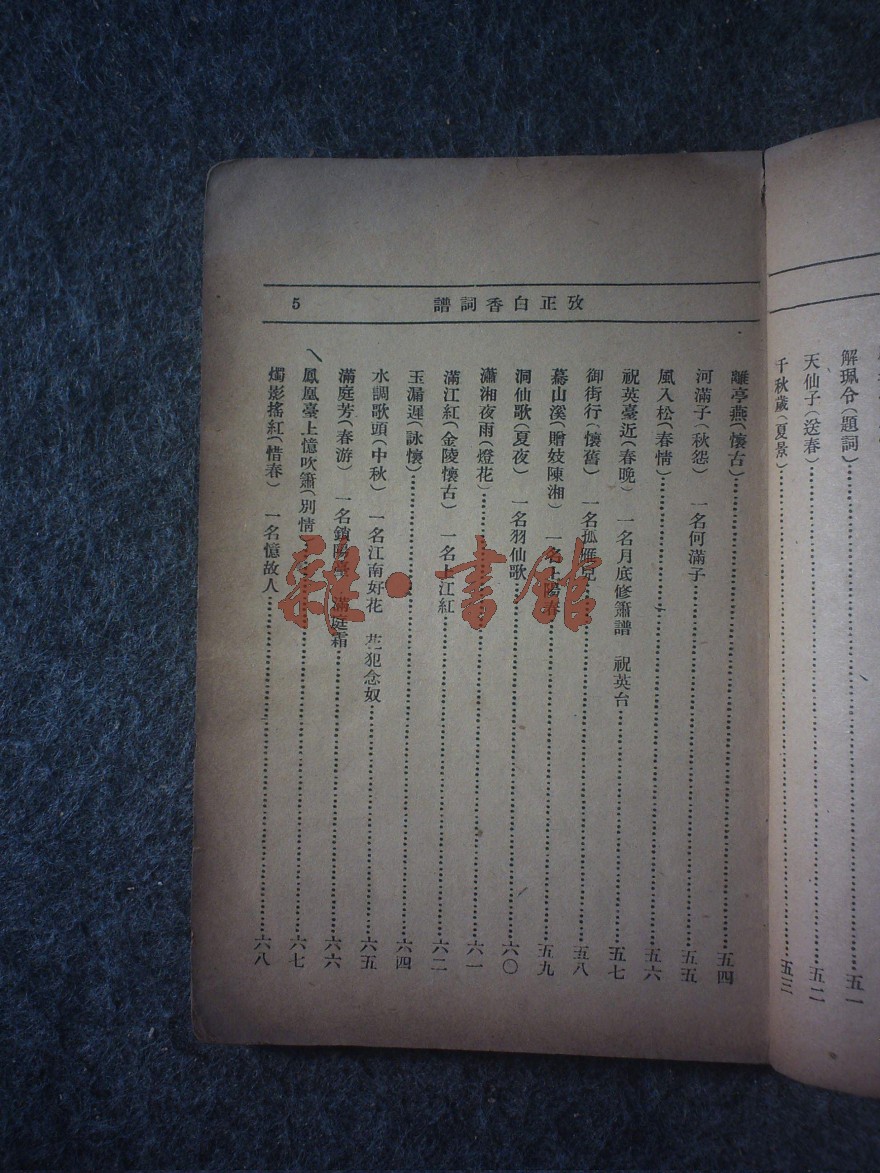 解珮令(題詞)……五一
天仙子(送春)……五二
千秋歲(夏景)……五三
攷正白香詞譜
5
離亭燕(懷古)……五四
河滿子(秋怨) 一名何滿子……五五
風入松(春情)……五六
祝英臺近(春晚) 一名月底修簫譜 祝英台……五七
御街行(懷舊) 一名孤雁兒……五八
驀山溪(贈妓陳湘) 一名上陽春……五九
洞仙歌(夏夜) 一名羽仙歌……六〇
瀟湘夜雨(燈花)……六一
滿江紅(金陵懷古) 一名上江紅……六二
玉漏遲(詠懷)……六四
水調歌頭(中秋) 一名江南好花 花犯念奴……六五
滿庭芳(春游) 一名鎖陽臺 滿庭霜……六六
鳳凰臺上憶吹簫(別情)……六七
燭影搖紅(惜春) 一名憶故人……六八
雜·書館